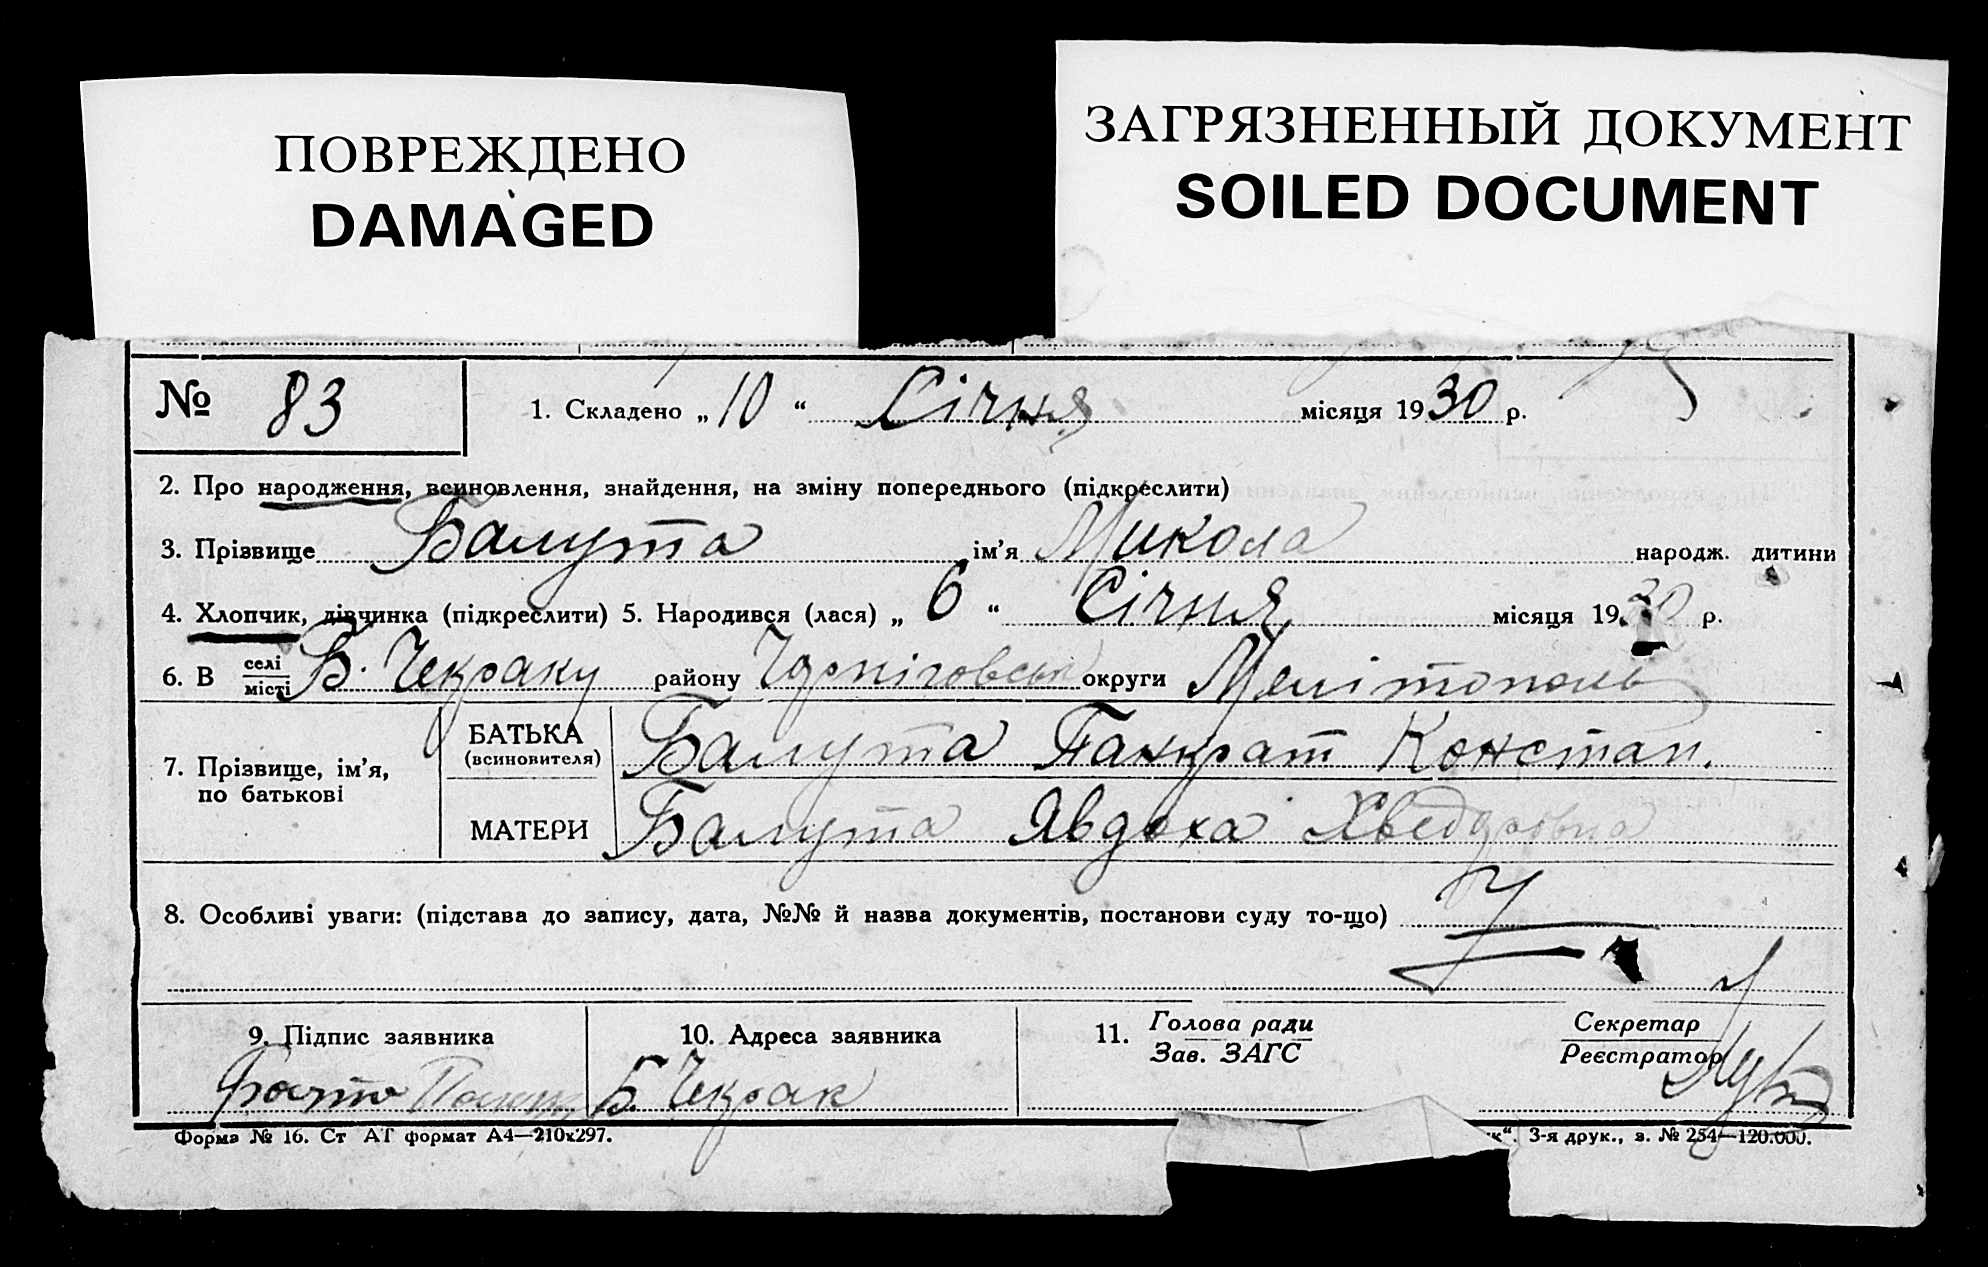 ПОВРЕЖДЕНО
DAMAGED
ЗАГРЯЗНЕННЫЙ ДОКУМЕНТ
SOILED DOCUMENT
№ 83
1. Складено „ 10 “ Січня місяця 1930 р.
2. Про народження, всиновлення, знайдення, на зміну попереднього (підкреслити)
3. Прізвище Балута ім'я Микола народж. дитини
4. Хлопчик, дівчинка (підкреслити) 5. Народився (лася) „ 6 “ Січня місяця 1930 р.
6. В селі
місті Б. Чекраку району Черніговськ округи Мелітополь
7. Прізвище, ім'я,
по батькові
БАТЬКА
(всиновителя)
Балута Панкрат Констан.
МАТЕРИ Балута Явдоха Хведоровна
8. Особливі уваги: (підстава до запису, дата, №№ й назва документів, постанови суду то-що)
9. Підпис заявника
10. Адреса заявника
Б. Чекрак
11. Голова ради
Зав. ЗАГС
Секретар
Реєстратор
Форма № 16. Ст АТ формат А4—210х297.
к“. 3-я друк., з. № 254—120.000.